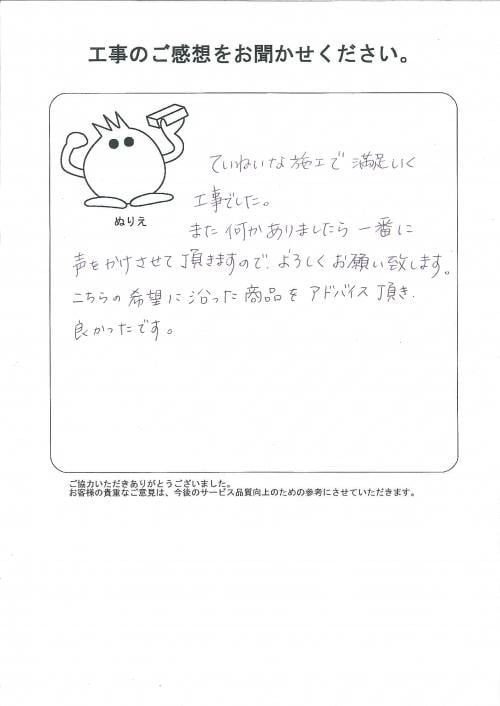 工事のご感想をお聞かせください。
ぬりえ
ていねいな施工で満足いく
工事でした。
また何かありましたら一番に
声をかけさせて頂きますので、よろしくお願い致します。
こちらの希望に沿った商品をアドバイス頂き、
良かったです。
ご協力いただきありがとうございました。
お客様の貴重なご意見は、今後のサービス品質向上のための参考にさせていただきます。